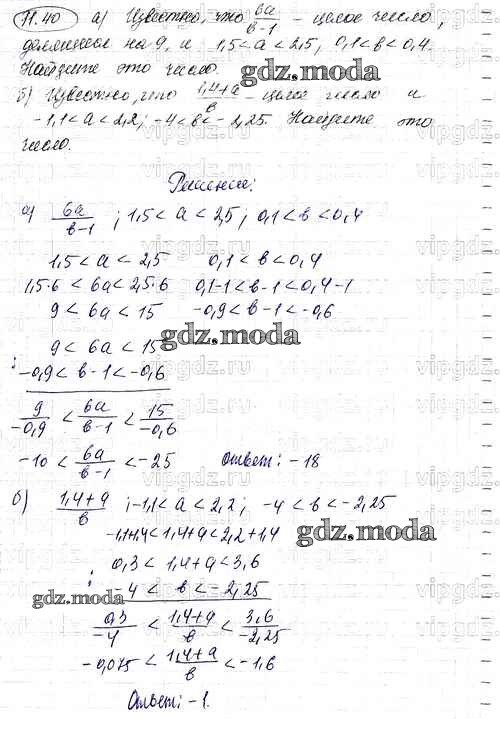 11.40 а) Известно, что 6a/(в-1) - целое число,
делящееся на 9, и 1,5<a<2,5, 0,1<в<0,4.
Найдите это число.
gdz.moda
б) Известно, что (1,4+a)/в - целое число и
-1,1<a<2,2; -4<в<-2,25. Найдите это
число.
Решение:
а) 6a/(в-1); 1,5<a<2,5; 0,1<в<0,4
1,5<a<2,5 0,1<в<0,4
1,5·6<6a<2,5·6 0,1-1<в-1<0,4-1
9<6a<15 -0,9<в-1<-0,6
9<6a<15
gdz.moda
: -0,9<в-1<-0,6
9/-0,9 < 6a/(в-1) < 15/-0,6
-10 < 6a/(в-1) < -25 Ответ: -18
б) (1,4+a)/в; -1,1<a<2,2; -4<в<-2,25
gdz.moda
-1,1+1,4<1,4+a<2,2+1,4
0,3<1,4+a<3,6
: -4<в<-2,25
gdz.moda
0,3/-4 < (1,4+a)/в < 3,6/-2,25
-0,075 < (1,4+a)/в < -1,6
Ответ: -1.